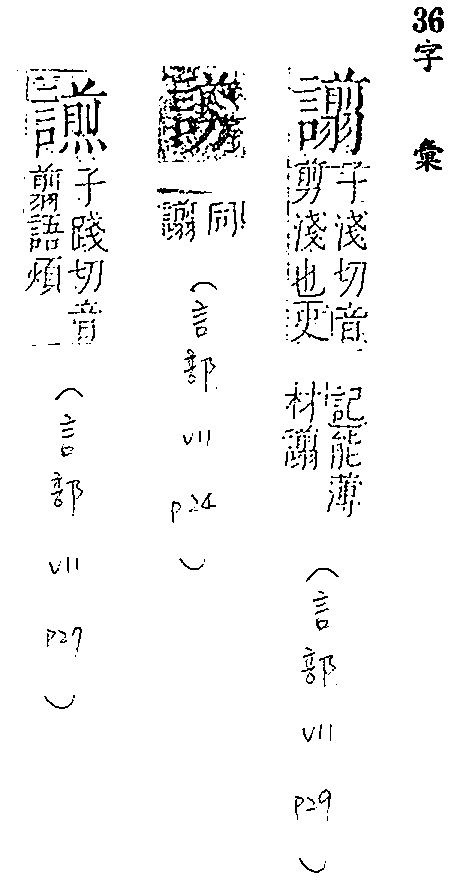 36字彙
譾
子淺切音
剪淺也史
記能薄
材譾
同
譾
(言部 VII p29)
(言部 VII p24)
子踐切音
翦語煩
(言部 VII p27)